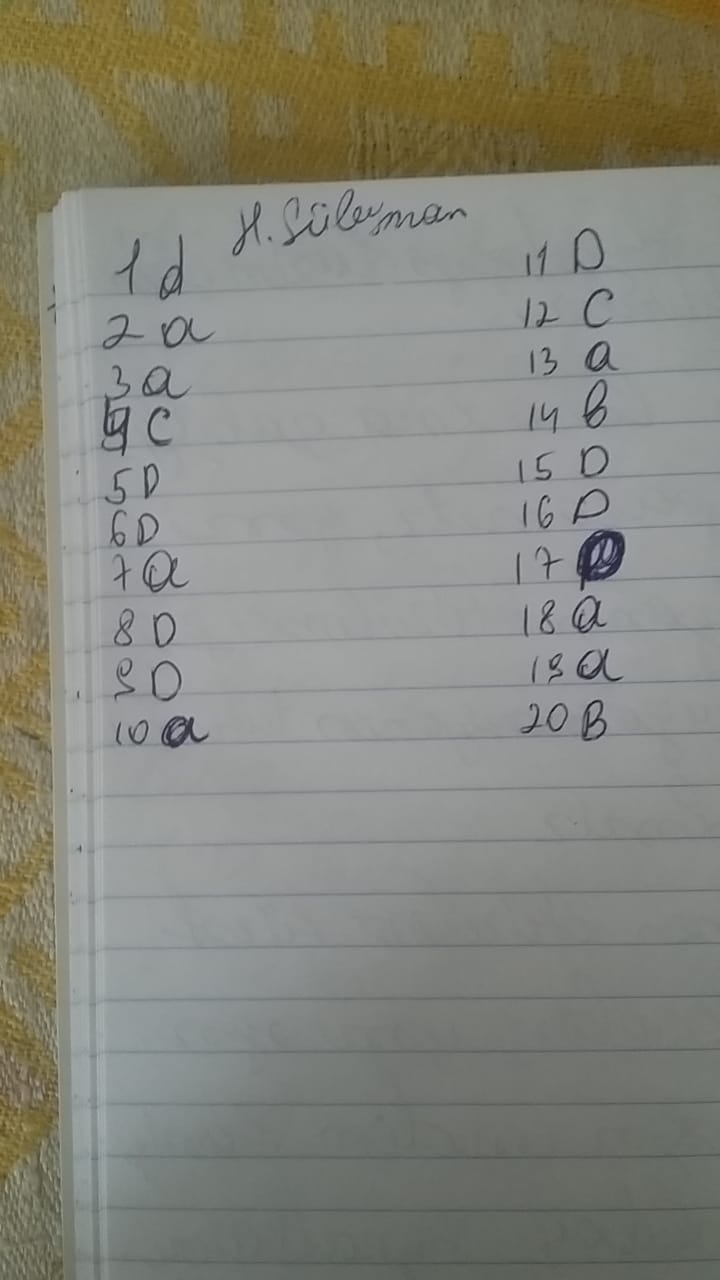 H. Süleyman
1 d
2 a
3 a
4 C
5 D
6 D
7 a
8 D
9 D
10 a
11 D
12 C
13 a
14 B
15 D
16 D
17
18 a
19 a
20 B